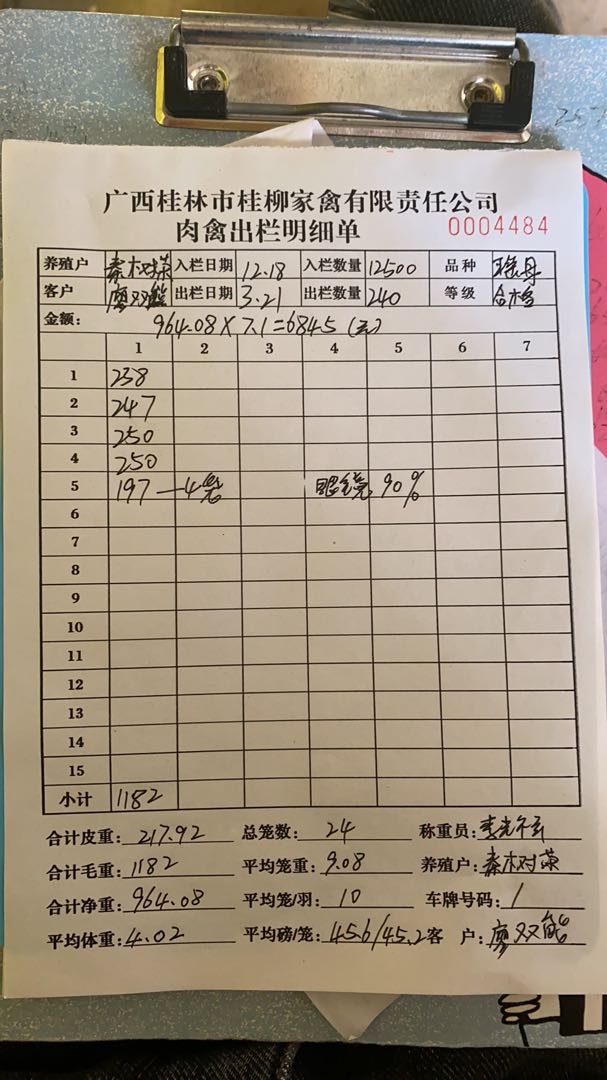 广西桂林市桂柳家禽有限责任公司
肉禽出栏明细单 0004484
养殖户 秦树荣 入栏日期 12.18 入栏数量 12500 品种
客户 廖双能 出栏日期 3.21 出栏数量 240 等级 合格
金额: 964.08×7.1=6845(元)
1 2 3 4 5 6 7
1 238
2 247
3 250
4 250
5 197—4笼 眼镜 90%
6
7
8
9
10
11
12
13
14
15
小计 1182
合计皮重: 217.92 总笼数: 24 称重员:
合计毛重: 1182 平均笼重: 9.08 养殖户: 秦树荣
合计净重: 964.08 平均笼/羽: 10 车牌号码: 1
平均体重: 4.02 平均磅/笼: 45.6/45.2 客 户: 廖双能